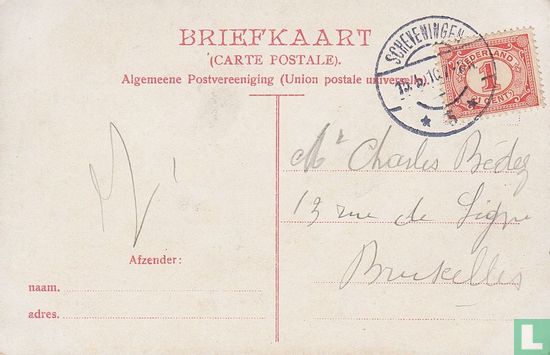 BRIEFKAART
(CARTE POSTALE).
Algemeene Postvereeniging (Union postale universelle)
SCHEVENINGEN
5
NEDERLAND
1
CENT
Mr Charles
13 rue de Ligne
Bruxelles
Afzender:
naam.
adres.
L